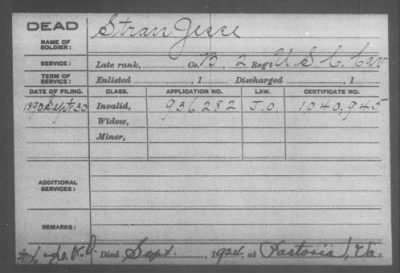 DEAD
NAME OF SOLDIER:
Stran Jesse
SERVICE:
Late rank, Co. B, 2 Reg't U S C Cav
TERM OF SERVICE:
Enlisted , 1 Discharged , 1
DATE OF FILING. CLASS. APPLICATION NO. LAW. CERTIFICATE NO.
1890 Sept. 30 Invalid, 936,282 J.O. 1,040,945
Widow,
Minor,
ADDITIONAL SERVICES:
REMARKS:
Died Sept. , 1924, at Pastoria, Va.